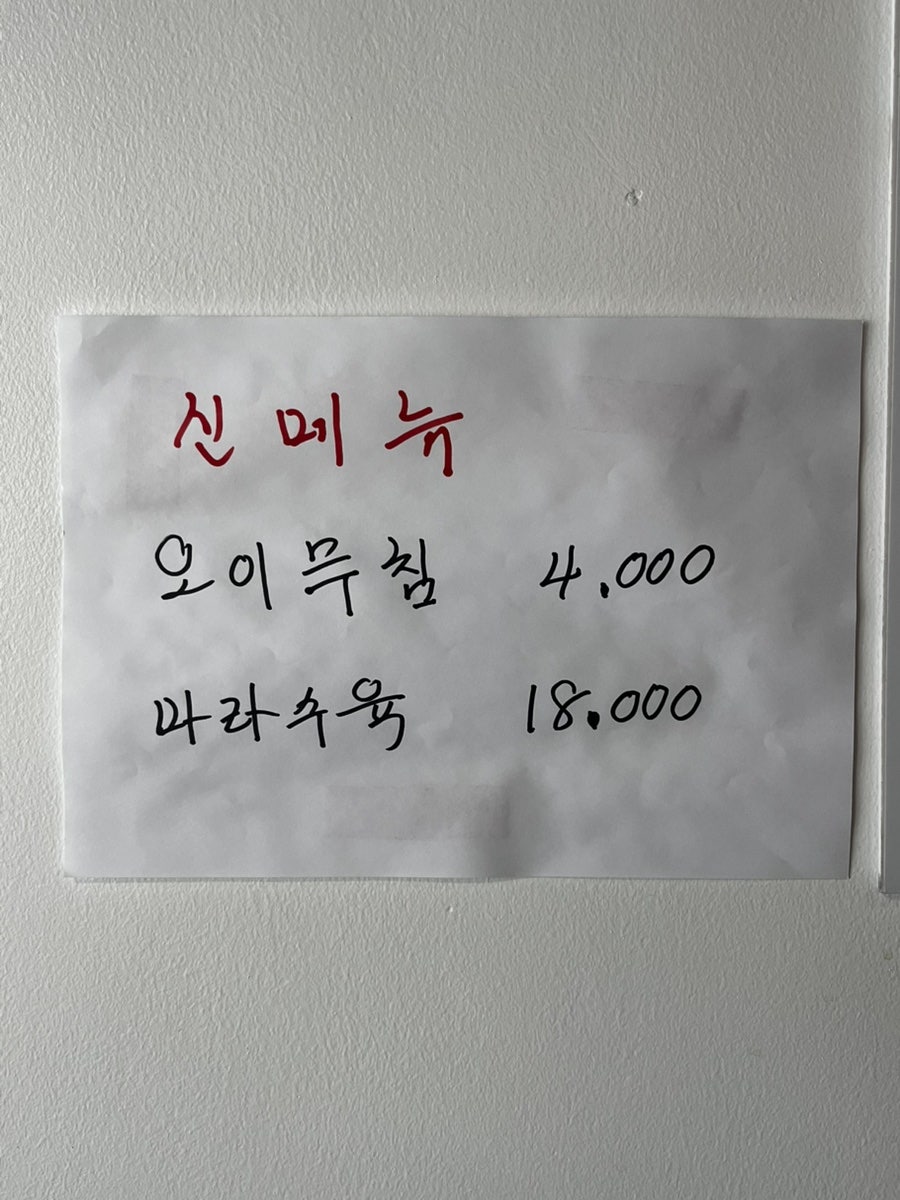 신메뉴
오이무침 4.000
마라수육 18.000